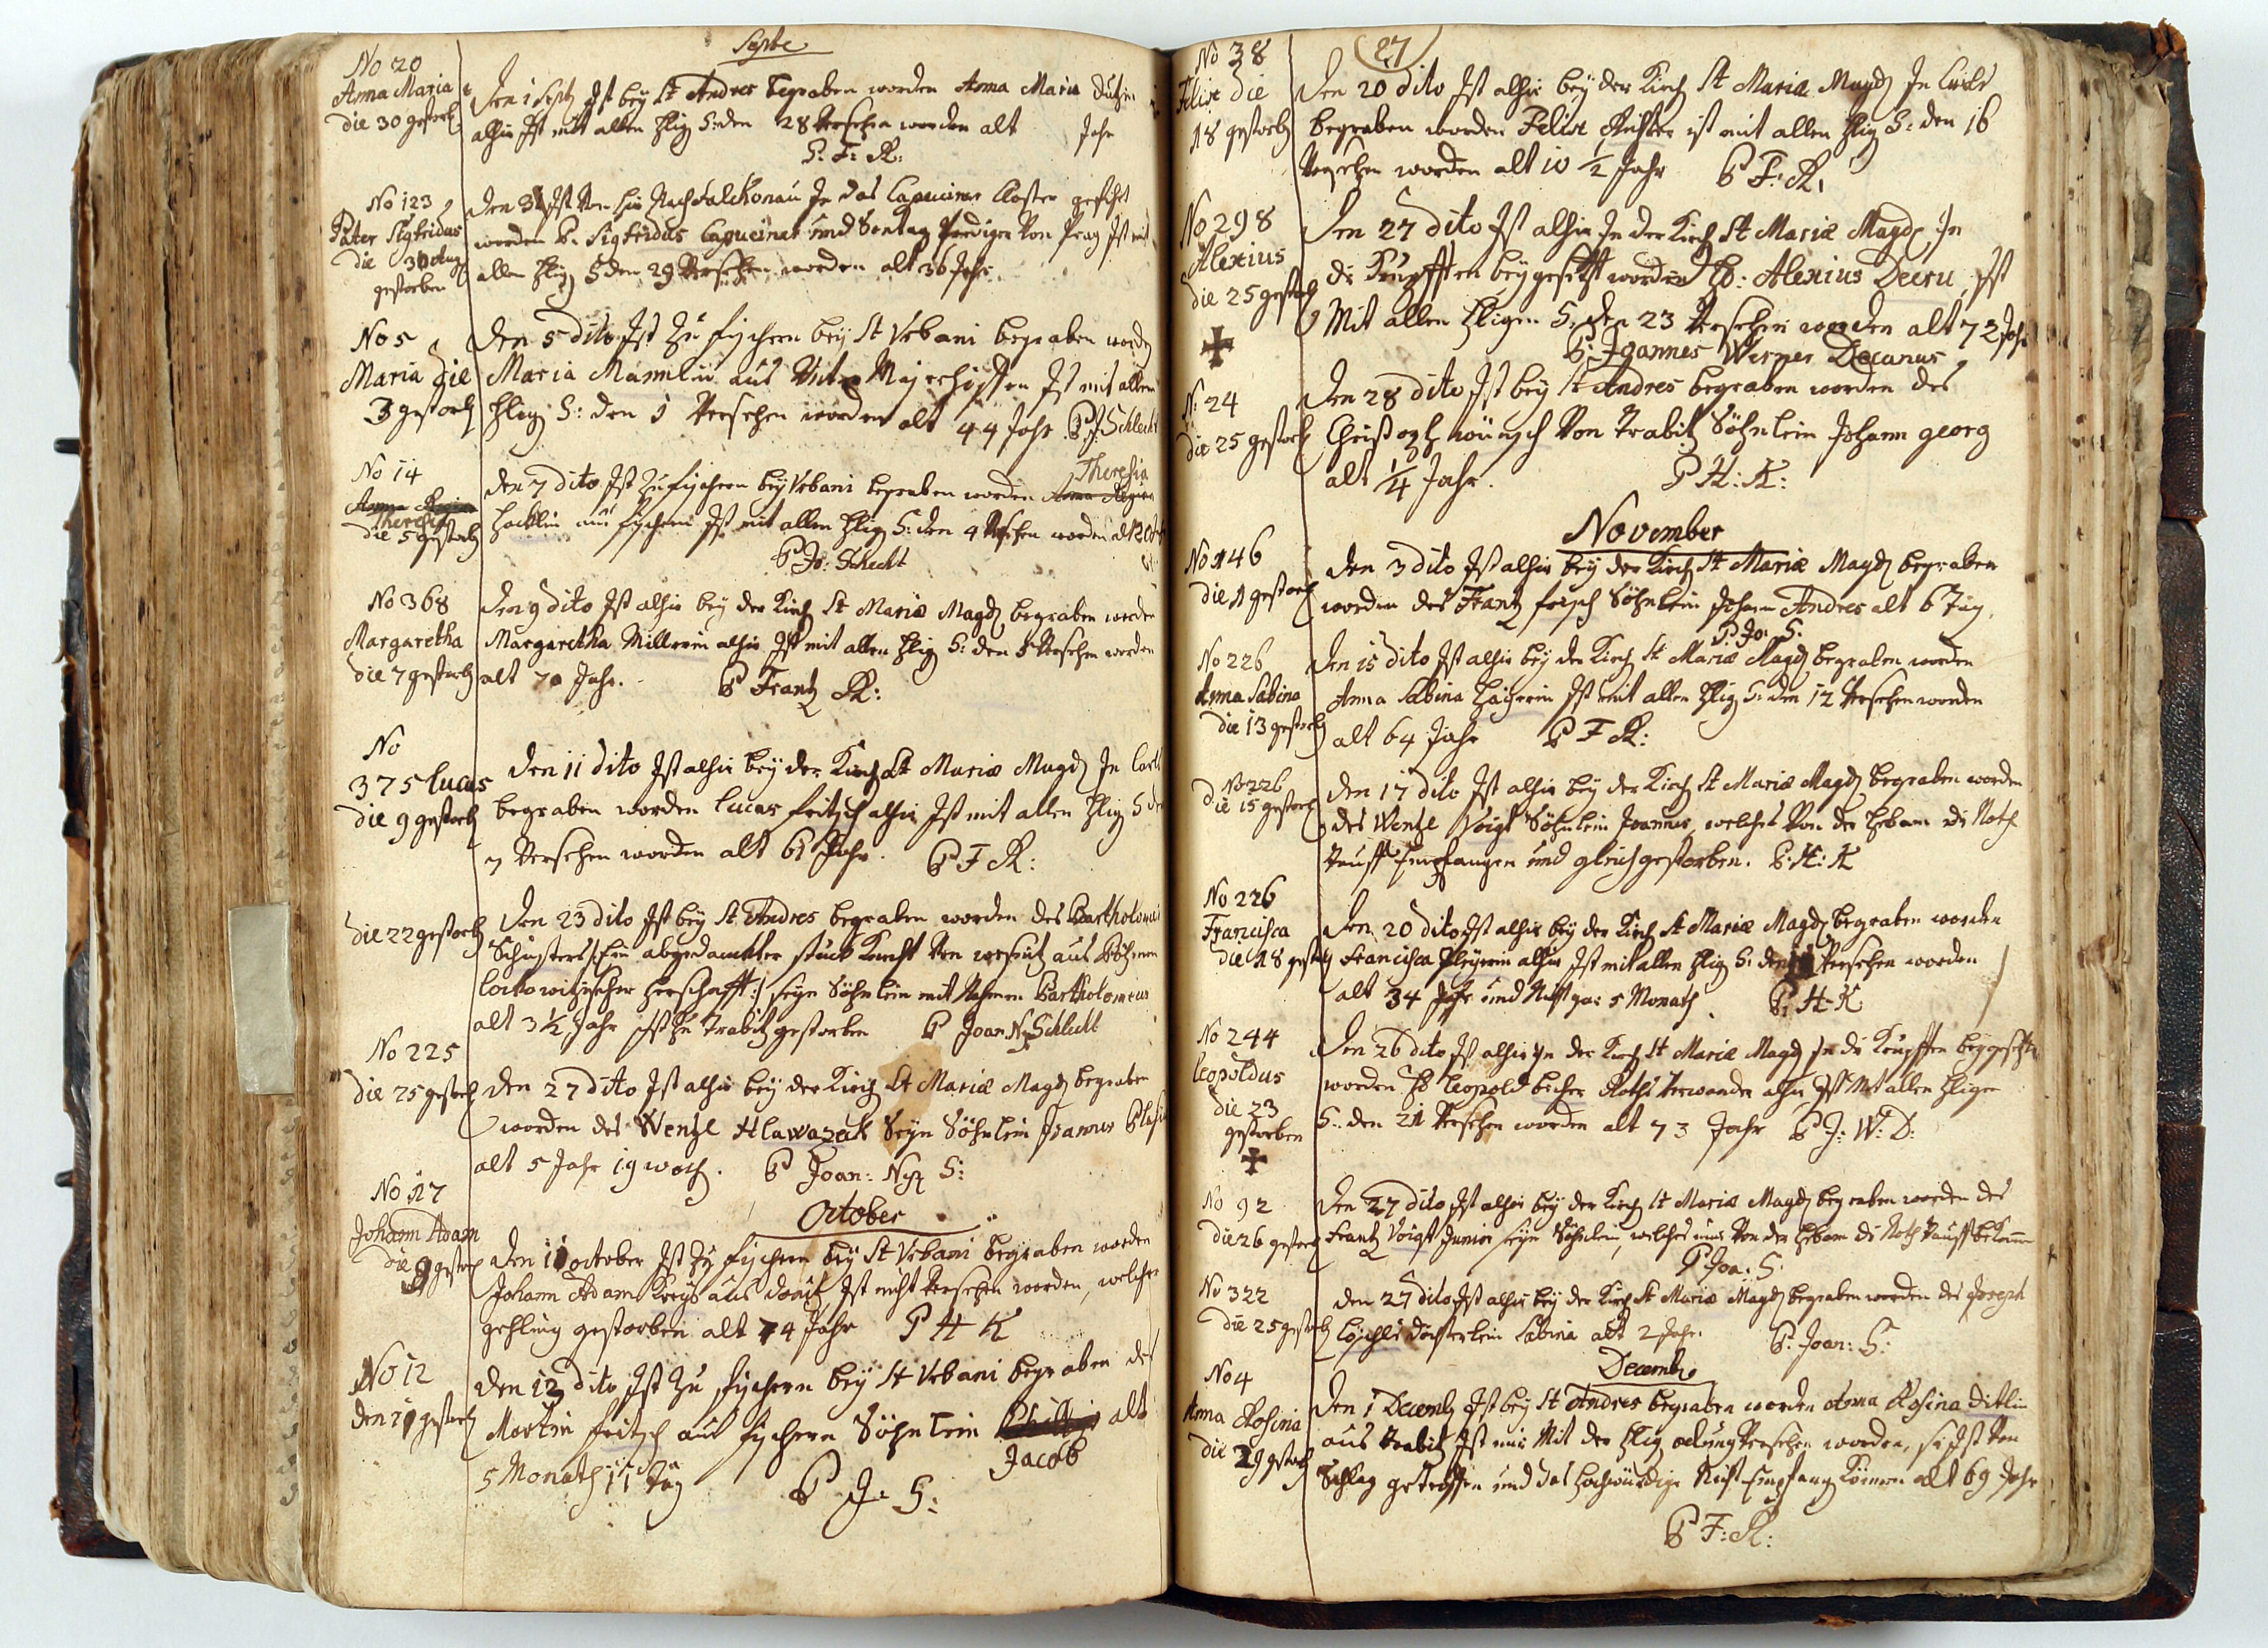 Septbe
No 20
Anna Maria
die 30 gestorb
Den 1 Septb Ist bey St Andres begraben worden Anna Maria
alhier Ist mit allen hlig S: den 28 Versehen worden alt Jahr
P: F: R:
No 123
Pater Sigfridus
die 30 Aug
gestorben
Den 31 Ist Von hier Nach Falckonau In das Capuciner Closter geführt
worden P. Sigfridus Capuciner und Sontag Prediger Von Prag Ist mit
allen hlig S den 29 Versehen worden alt 36 Jahr
No 5
Maria die
3 gestorb
Den 5 dito Ist Zu fischern bey St Vrbani begraben word
Maria Mannlin aus Vnter Majerhöffen Ist mit allen
hlig S: den 1 Versehen worden alt 44 Jahr P J Schlecht
No 14
Anna Regina
Theresia
die 5 gestorb
Theresia
Den 7 dito Ist Zu fischern bey Vrbani begraben worden Anna Regina
Hacklin aus fischern Ist mit allen hlig S: den 4 Versehen worden
P Jo: Schlecht
No 368
Margaretha
die 7 gestorb
Den 9 dito Ist alhier bey der Kirch St Mariæ Magd begraben worden
Margaretha Millerin alhier Ist mit allen hlig S: den 5 Versehen worden
alt 70 Jahr. P Frantz R:
No
375 Lucas
die 9 gestorb
Den 11 dito Ist alhier bey der Kirch St Mariæ Magd In
begraben worden Lucas fritsch alhier Ist mit allen hlig S den
7 Versehen worden alt 61 Jahr. P F R:
die 22 gestorb
Den 23 dito Ist bey St Andres begraben worden des Bartholomei
Schusters ein abgedanckter stuck Knecht Von aus Böhmen
herschafft:/ seyn Söhnlein mit Nahmen Bartholomeus
alt 3 ½ Jahr Ist Zu Trabitz gestorben P Joan. Np Schlecht
No 225
die 25 gestorb
Den 27 dito Ist alhier bey der Kirch St Mariæ Magd begraben
worden des Wentzl Hlawazeck Seyn Söhnlein Joannes
alt 5 Jahr 19 woch. P Joan: Np S:
October
No 17
Johann Adam
die 9 gestorb
Den 11 october Ist Zu fischern bey St Vrbani begraben worden
Johann Adam aus Ist nicht Versehen worden, welcher
gehling gestorben alt 74 Jahr P H K
No 12
den 11 gestorb
Den 12 dito Ist Zu fischern bey St Vrbani begraben des
Martin fritsch aus fischern Söhnlein alt
Jacob
5 Monath 11 Tag P J: S:
27
No 38
Felix die
18 gestorb
Den 20 dito Ist alhier bey der Kirch St Mariæ Magd In
begraben worden Felix Richter ist mit allen hlig S: den 16
Versehen worden alt 10 ½ Jahr P F: R:
No 298
Alexius
die 25 gestorb
Den 27 dito Ist alhier In der Kirch St Mariæ Magd In
die Krupfften beygesetzt worden H: Alexius Deeru, Ist
Mit allen hligen S. den 23 Versehen worden alt 72 Jahr
P: Joannes Werner Decanus
N: 24
die 25 gestorb
Den 28 dito Ist bey St Andres begraben worden des
Christoph wünsch Von Trabitz Söhnlein Johann georg
alt ¼ Jahr. P H: K:
November
No 146
die 1 gestorb
Den 3 dito Ist alhier bey der Kirch St Mariæ Magd begraben
worden des Frantz Söhnlein Johann Andres alt 6 Tag.
P. Jo: S:
No 226
Anna Sabina
die 13 gestorb
Den 15 dito Ist alhier bey der Kirch St Mariæ Magd begraben worden
Anna Sabina Ist mit allen hlig S: den 12 Versehen worden
alt 64 Jahr P F R:
No 226
die 15 gestorb
Den 17 dito Ist alhier bey der Kirch St Mariæ Magd begraben worden
des Wentzl Voigt Söhnlein Joannes, welches Von der hebam die Noth
Tauff Empfangen und gleich gestorben. P: H: K
No 226
Francisca
die 18 gestorb
Den 20 dito Ist alhier bey der Kirch St Mariæ Magd begraben worden
Francisca alhier Ist mit allen hlig S: den Versehen worden
alt 34 Jahr und 5 Monath. P: H-K
No 244
Leopoldus
die 23
gestorben
Den 26 dito Ist alhier In der Kirch St Mariæ Magd In die Krupfften beygesetzt
worden H Leopold becher Raths Verwander alhier Ist Mit allen hligen
S. den 21 Versehen worden alt 73 Jahr P J: W: D:
No 92
die 26 gestorb
Den 27 dito Ist alhier bey der Kirch St Mariæ Magd begraben worden des
Frantz Voigt Junior seyn Söhnlein, welches nur Von der hebam die Noth Tauff bekomen
P Joa: S:
No 322
die 25 gestorb
Den 27 dito Ist alhier bey der Kirch St Mariæ Magd begraben worden des Joseph
Löschls döchterlein Sabina alt 2 Jahr. P: Joan: S:
Decembe
No 4
Anna Rosina
die 29 gestorb
Den 1 Decemb Ist bey St Andres begraben worden Anna Rosina Ditlin
aus Trabitz Ist nur Mit der hlig ölung Versehen worden, sie Ist Von
Schlag getroffen und das hochwürdige Nicht Empfang Können alt 69 Jahr
P F: R: